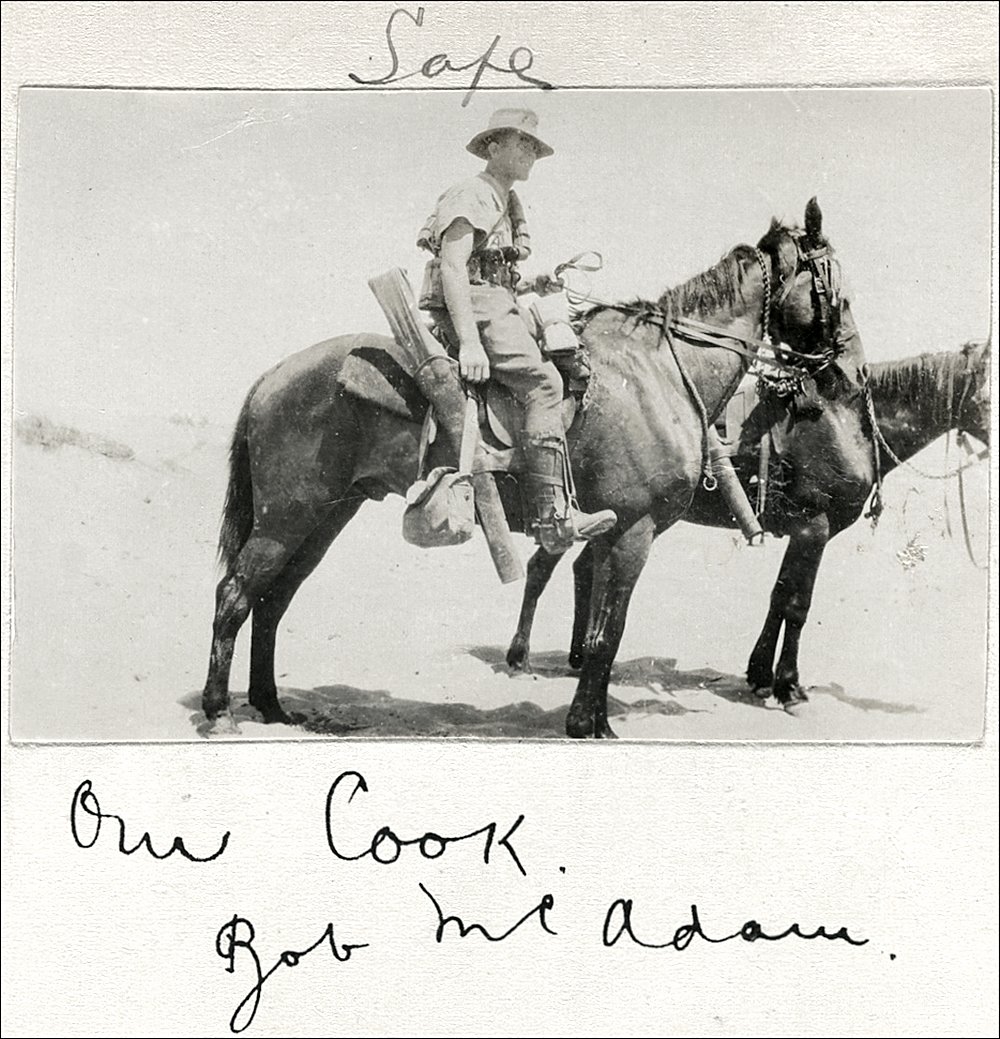 Safe
Our Cook.
Bob McAdam.